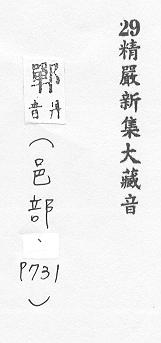 29精嚴新集大藏音
鄲
音丹
(邑部、
P731)